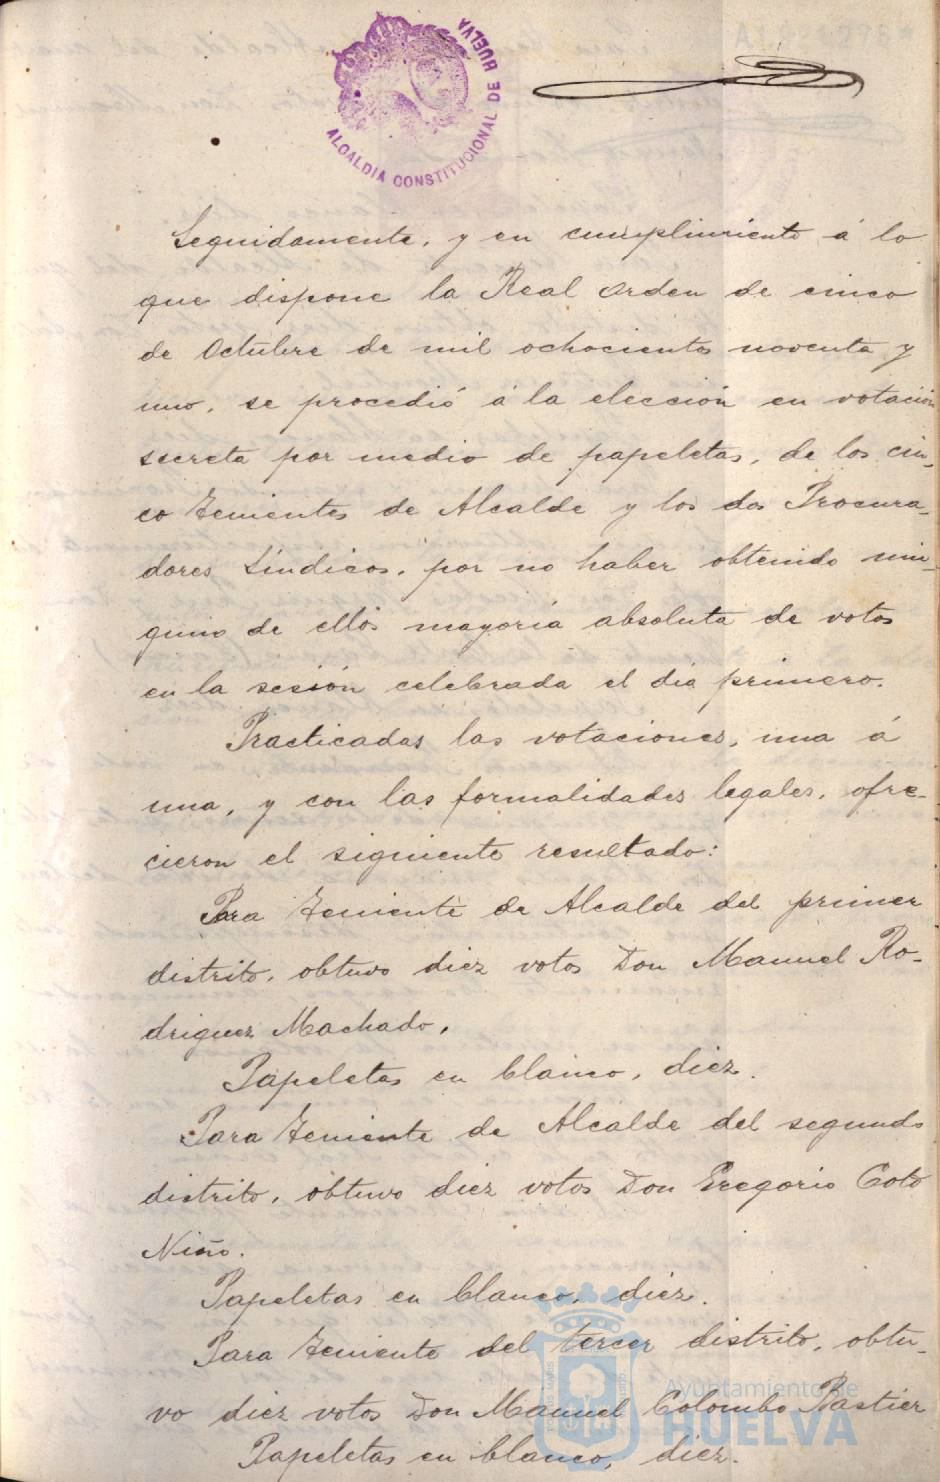 ALCALDIA CONSTITUCIONAL DE HUELVA
Seguidamente, y en cumplimiento á lo
que dispone la Real orden de cinco
de Octubre de mil ochocientos noventa y
uno, se procedió á la elección en votación
secreta por medio de papeletas, de los cin-
co Tenientes de Alcalde y los dos Procura-
dores Síndicos, por no haber obtenido nin-
guno de ellos mayoría absoluta de votos
en la sesión celebrada el día primero.
Practicadas las votaciones, una á
una, y con las formalidades legales, ofre-
cieron el siguiente resultado:
Para Teniente de Alcalde del primer
distrito, obtuvo diez votos Don Manuel Ro-
driguez Machado.
Papeletas en blanco, diez.
Para Teniente de Alcalde del segundo
distrito, obtuvo diez votos Don Gregorio Coto
Niño.
Papeletas en blanco, diez.
Para Teniente del tercer distrito, obtu-
vo diez votos Don Manuel Colombo Bastier
Papeletas en blanco, diez.
Ayuntamiento de
HUELVA